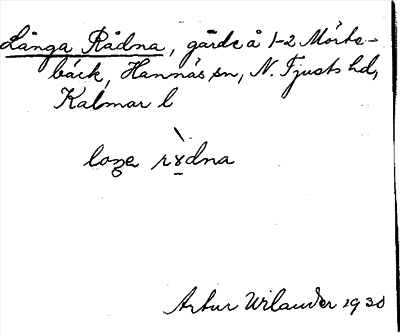 Långa Rådna, gärde å 1-2 Mörte-
bäck, Hannäs sn, N. Tjusts hd,
Kalmar l
loŋa rɤ̀dna
Artur Wilander 1930